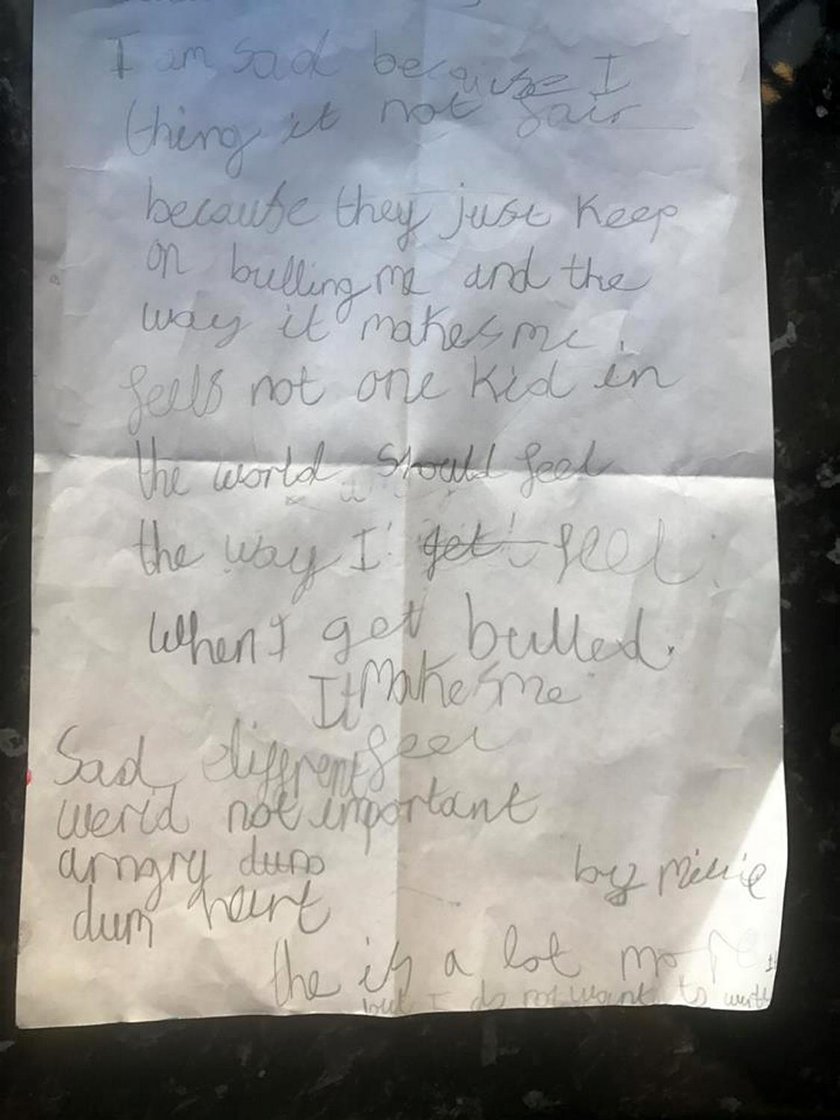 I am sad because I
thing it not fair
because they just keep
on bulling me and the
way it makes me
feels not one kid in
the world should feel
the way I get feel.
When I get bulled.
It makes me
feel
sad different
werid not important
arngry dum
dum heurt
by Millie
the is a lot more
but I do not want to writt